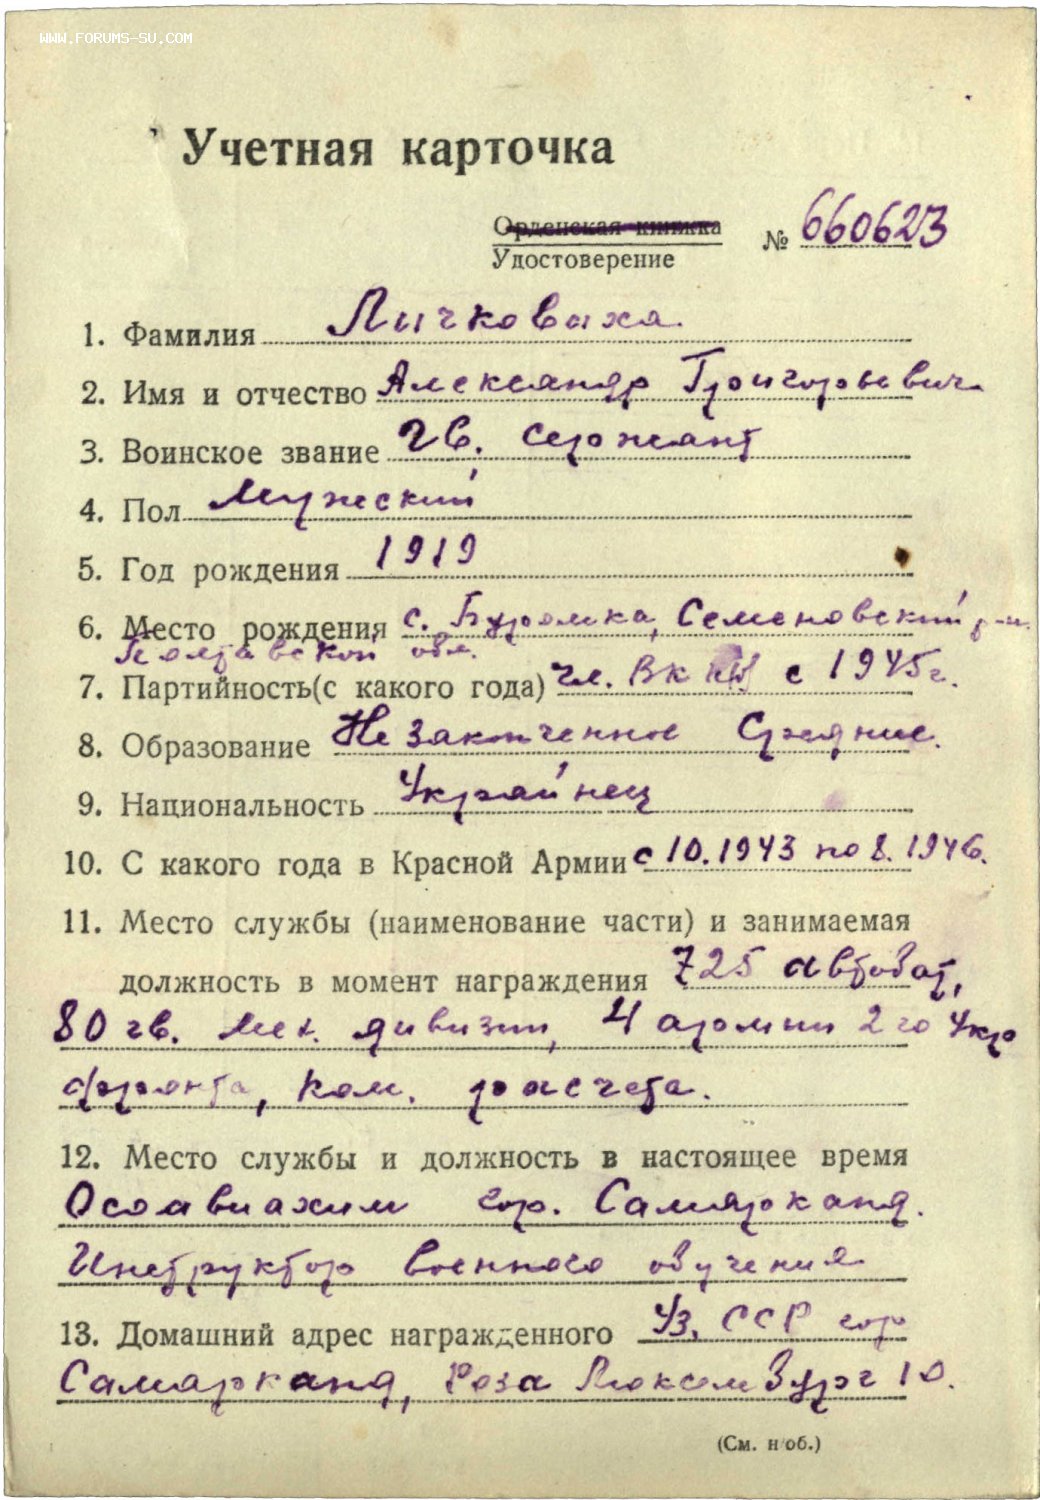 WWW.FORUMS-SU.COM
Учетная карточка
Орденская книжка
Удостоверение № 660623
1. Фамилия Личковаха
2. Имя и отчество Александр Григорьевич
3. Воинское звание гв. сержант
4. Пол Мужеский
5. Год рождения 1919
6. Место рождения с. Буромка, Семеновский р-н.
Полтавской обл.
7. Партийность(с какого года) чл. ВКП(б) с 1945г.
8. Образование Незаконченное Среднее.
9. Национальность Украйнец
10. С какого года в Красной Армии с 10.1943 по 8.1946.
11. Место службы (наименование части) и занимаемая
должность в момент награждения 725 автобат,
80 гв. мех. дивизии, 4 армии 2го Укр
фронта, ком. расчета.
12. Место службы и должность в настоящее время
Осоавиахим гор. Самарканд.
Инструктор военного обучения
13. Домашний адрес награжденного Уз. ССР гор
Самарканд, Роза Люксембург 10.
(См. н об.)